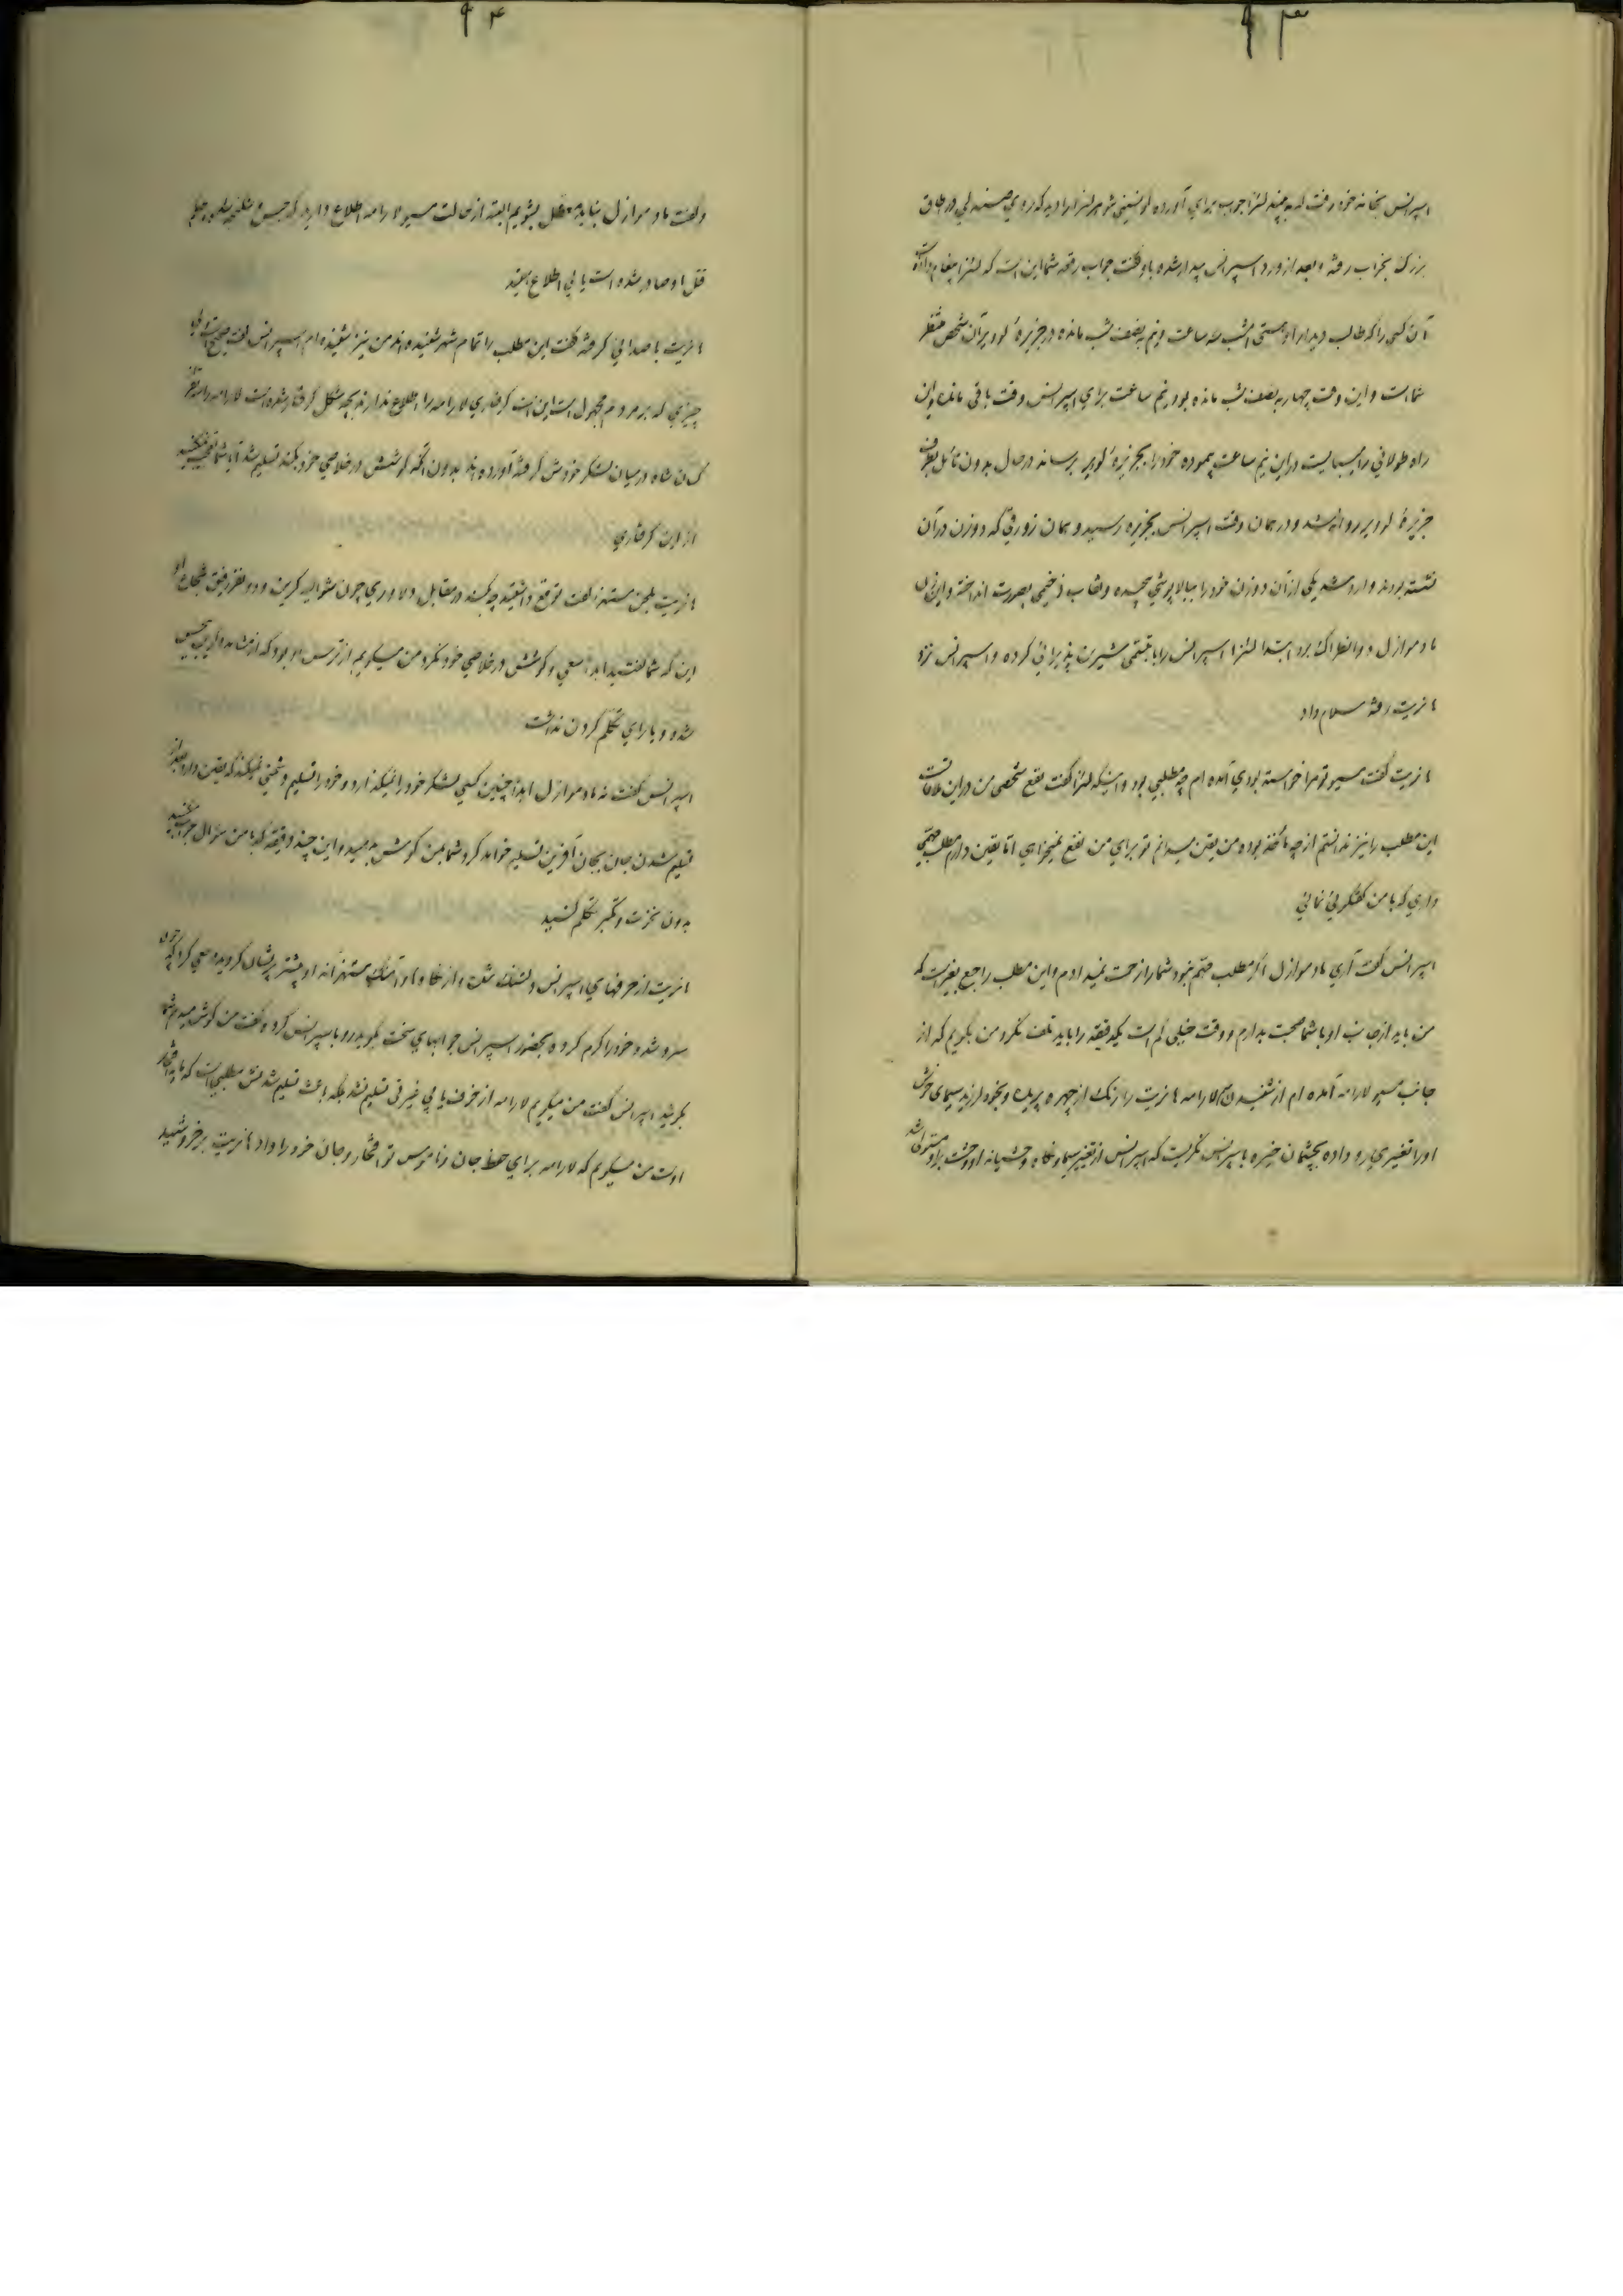 ۹۳
اسپرانس بخانه خود رفت که به بیند لئنزا جواب برای آورده لوسینی شوهر لئنزا را دید که روی صندلی در طاق
بزرک بخواب رفته و بعد از ورود اسپرانس بیدار شده باو کفت جواب رقعه شما این است که لئنزا پیغام داده است
آن کسی را که طالب دیدار او هستی امشب سه ساعت و نیم بنصف شب مانده در جزیره لوویر آن شخص منتظر
شماست و این وقت چهار بنصف شب مانده بود نیم ساعت برای اسپرانس وقت باقی مانده و این
راه طولانی را میبایست در این نیم ساعت پیموده خود را بجزیره لوویر برساند در حال بدون تأمل بطرف
جزیره لوویر روانه شد و در همان وقت اسپرانس بجزیره رسید و همان زورقی که دو زن در آن
نشسته بودند وارد شد یکی از آن دو زن خود را ببالاپوشی پیچیده و نقاب ضخیمی بصورت انداخته و این زن
مادموازل دوانطراک بود ابتدا لئنزا اسپرانس را با تبسمی شیرین پذیرائی کرده و اسپرانس نزد
هانریت رفته سلام داد
هانریت کفت مسیو تو مرا خواسته بودی آمده ام چه مطلبی بود و اینکه لئنزا کفت نفع شخصی من در این ملاقات است
این مطلب را نیز ندانستم از چه مأخذ بوده من یقین میدانم تو برای من نفع نمیخواهی اما یقین دارم مطلب مهمی
داری که با من کفتکوئی نمائی
اسپرانس کفت آری مادموازل اکر مطلب مهم نبود شما را زحمت نمیدادم و این مطلب راجع بغیر است که
من باید از جانب او با شما صحبت بدارم و وقت خیلی کم است یکدقیقه را باید تلف نکرد من بکویم که از
جانب مسیو لارامه آمده ام از شنیدن اسم لارامه هانریت را رنک از چهره پریده و بخود لرزید سیمای خوش
او را تغییری پاره داده بچشمان خیره باسپرانس نکریست که اسپرانس از تغییر سیما و نکاه وحشیانه او وحشت بر او مستولی شد
۹۴
و کفت مادموازل نباید معطل بشویم البته از حالت مسیو لارامه اطلاع دارید که
قتل او صادر شده است یا بی اطلاع هستید
هانریت با صدائی کرفته کفت این مطلب را تمام شهر شنیده اند من نیز شنیده ام اسپرانس کفت صحیح است ولی
چیزی که بر مردم مجهول است این است کرفتاری لارامه را اطلاع ندارند بچه شکل کرفتار شده است لارامه را
کسان شاه در میان لشکر خودش کرفته آورده اند بدون آنکه کوشش در خلاصی خود بکند تسلیم شد آیا شما تعجب نمیکنید
از این کرفتاری
هانریت بلحن مستهزء کفت توقع داشتید چه کند در مقابل دلاوری چون شوالیه کریون و دو نفر رفیق شجاع او
این که شما کفتید ابداً سعی و کوشش در خلاصی خود نکرد من میکویم از ترس او بود که از مشاهده
شده و یارای تکلم کردن نداشت
اسپرانس کفت نه مادموازل ابداً چنین کسی لشکر خود را نمیکذارد و خود را تسلیم دشمنی نمیکند که یقین دارد بعد از
تسلیم شدن جان بجان آفرین تسلیم خواهد کرد شما بمن کوش بدهید و این چند دقیقه که با من سؤال
بدون نخوت و تکبر تکلم کنید
هانریت از حرفهای اسپرانس دلتنک شد و از نکاه و آهنک مستهزانه او بیشتر پریشان کردیده سعی کرد که خون
سرد شده خود را کرم کرده بحضور اسپرانس جوابهای سخت بکوید رو باسپرانس کرد و کفت من کوش میدهم شما
بکوئید اسپرانس کفت من میکویم لارامه از خوف یا بی غیرتی تسلیم نشد بلکه باعث تسلیم شدنش مطلبی است که مایه افتخار
اوست من میکویم که لارامه برای حفظ جان و ناموس تو افتخار و جان خود را داد هانریت برخروشید